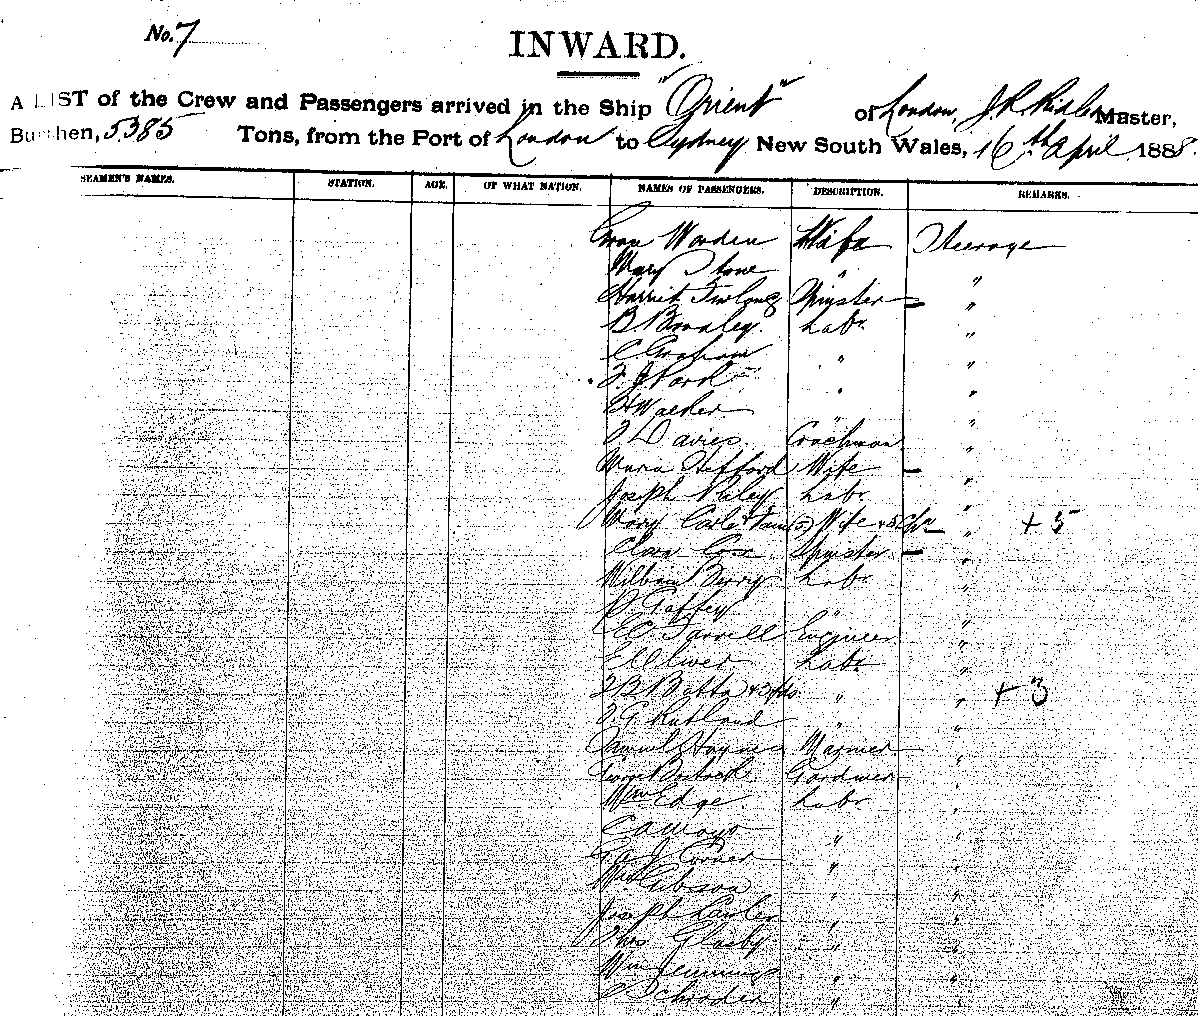 No. 7
INWARD.
A LIST of the Crew and Passengers arrived in the Ship "Orient" of London, J. R. Master,
Burthen, 5385 Tons, from the Port of London to Sydney New South Wales, 16th April 1888.
SEAMEN'S NAMES. STATION. AGE. OF WHAT NATION. NAMES OF PASSENGERS. DESCRIPTION. REMARKS.
Worden Wife Steerage
Mary Stone " "
Harriet Furlong Spinster - "
B Labr "
C Graham " "
J. Ford " "
H Walker " "
J Davies Coachman "
Maria Stafford Wife - "
Joseph Labr "
Mary (5) Wife & 5 Chn - " + 5
Clara Cox Spinster - "
William Berry Labr "
P Gaffey " "
Farrell Engineer "
E Oliver Labr "
J B " " + 3
J. G. Rutland " "
Samuel Haynes Mariner "
George Bostock Gardener "
Wm Edge Labr "
C A Mayo " "
Corner " "
Wm Gibson " "
Joseph " "
Thos Glasby " "
Wm Jennings " "
C Schroder "